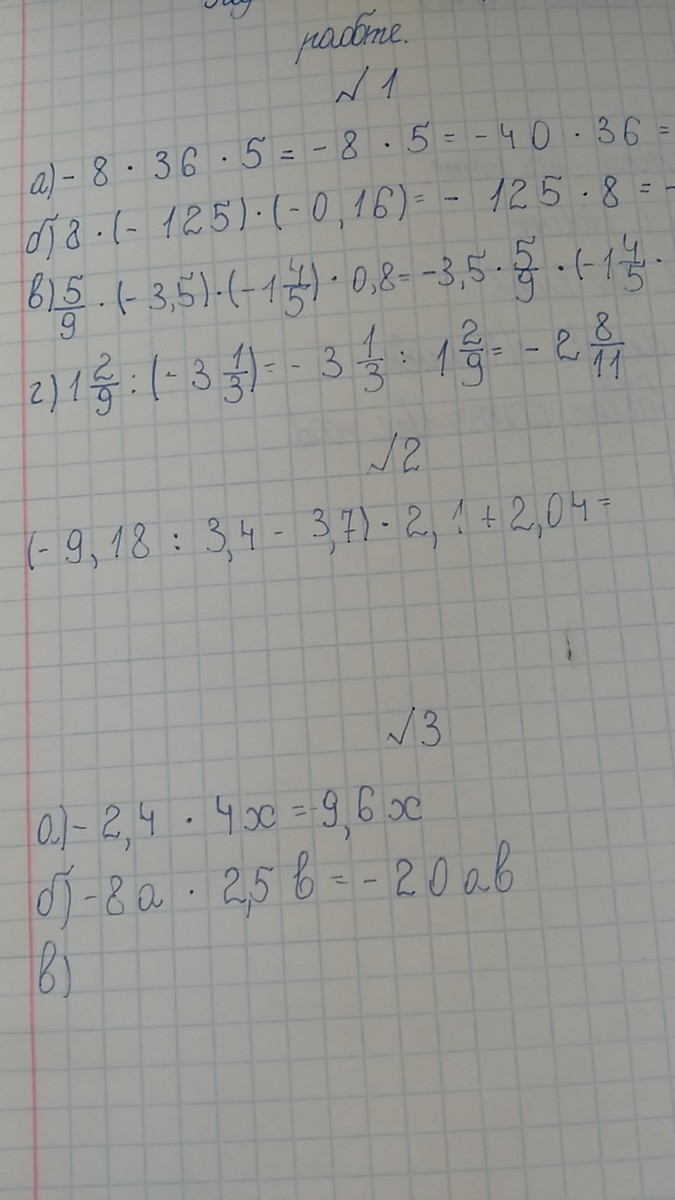 работе.
№1
а) - 8 · 36 · 5 = - 8 · 5 = - 40 · 36 =
б) 8 · (- 125) · (- 0,16) = - 125 · 8 = -
в) 5/9 · (- 3,5) · (- 1 4/5) · 0,8 = - 3,5 · 5/9 · (- 1 4/5 ·
г) 1 2/9 : (- 3 1/3) = - 3 1/3 : 1 2/9 = - 2 8/11
№2
(- 9,18 : 3,4 - 3,7) · 2,1 + 2,04 =
№3
а) - 2,4 · 4х = -9,6х
б) - 8а · 2,5в = - 20ав
в)